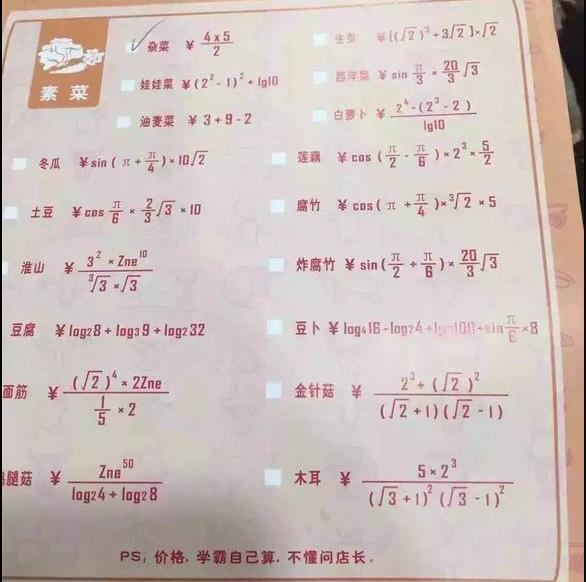 素菜
杂菜 ¥ 4×5/2
生菜 ¥[(√2)³+3√2]×√2
娃娃菜 ¥(2²-1)²+lg10
西洋菜 ¥ sin π/3 × 20/3 √3
油麦菜 ¥ 3+9-2
白萝卜 ¥ 2⁴-(2³-2)/lg10
冬瓜 ¥sin(π+π/4)×10√2
莲藕 ¥ cos(π/2-π/6)×2³×5/2
土豆 ¥cos π/6 × 2/3 √3 ×10
腐竹 ¥ cos(π+π/4)×³√2 ×5
淮山 ¥ 3²×Zne¹⁰/³√3×√3
炸腐竹 ¥ sin(π/2+π/6)×20/3 √3
豆腐 ¥log₂8+log₃9+log₂32
豆卜 ¥log₄16-log₂4+lg100+sin π/6 ×8
面筋 ¥ (√2)⁴×2Zne/1/5×2
金针菇 ¥ 2³+(√2)²/(√2+1)(√2-1)
腿菇 ¥ Zne⁵⁰/log₂4+log₂8
木耳 ¥ 5×2³/(√3+1)²(√3-1)²
PS, 价格, 学霸自己算, 不懂问店长。